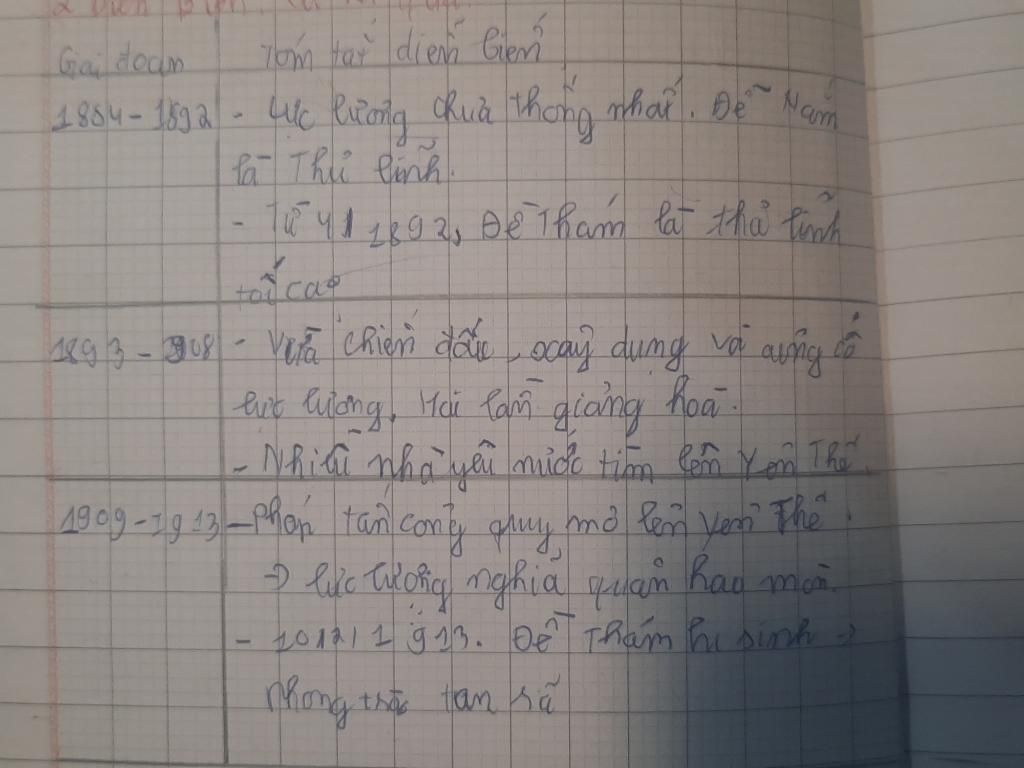 Giai đoạn Tóm tắt diễn biến
1884-1892 - Lực lượng chưa thống nhất. Đề Nắm
là Thủ lĩnh.
- Từ 4/1892, Đề Thám là thủ lĩnh
tối cao
1893-1908 - Vừa chiến đấu, xây dựng và củng cố
lực lượng, Hai lần giảng hoà.
- Nhiều nhà yêu nước tìm lên Yên Thế.
1909-1913 - Pháp tấn công quy mô lên Yên Thế.
→ lực lượng nghĩa quân hao mòn.
- 10/2/1913. Đề Thám hi sinh →
Phong trào tan rã